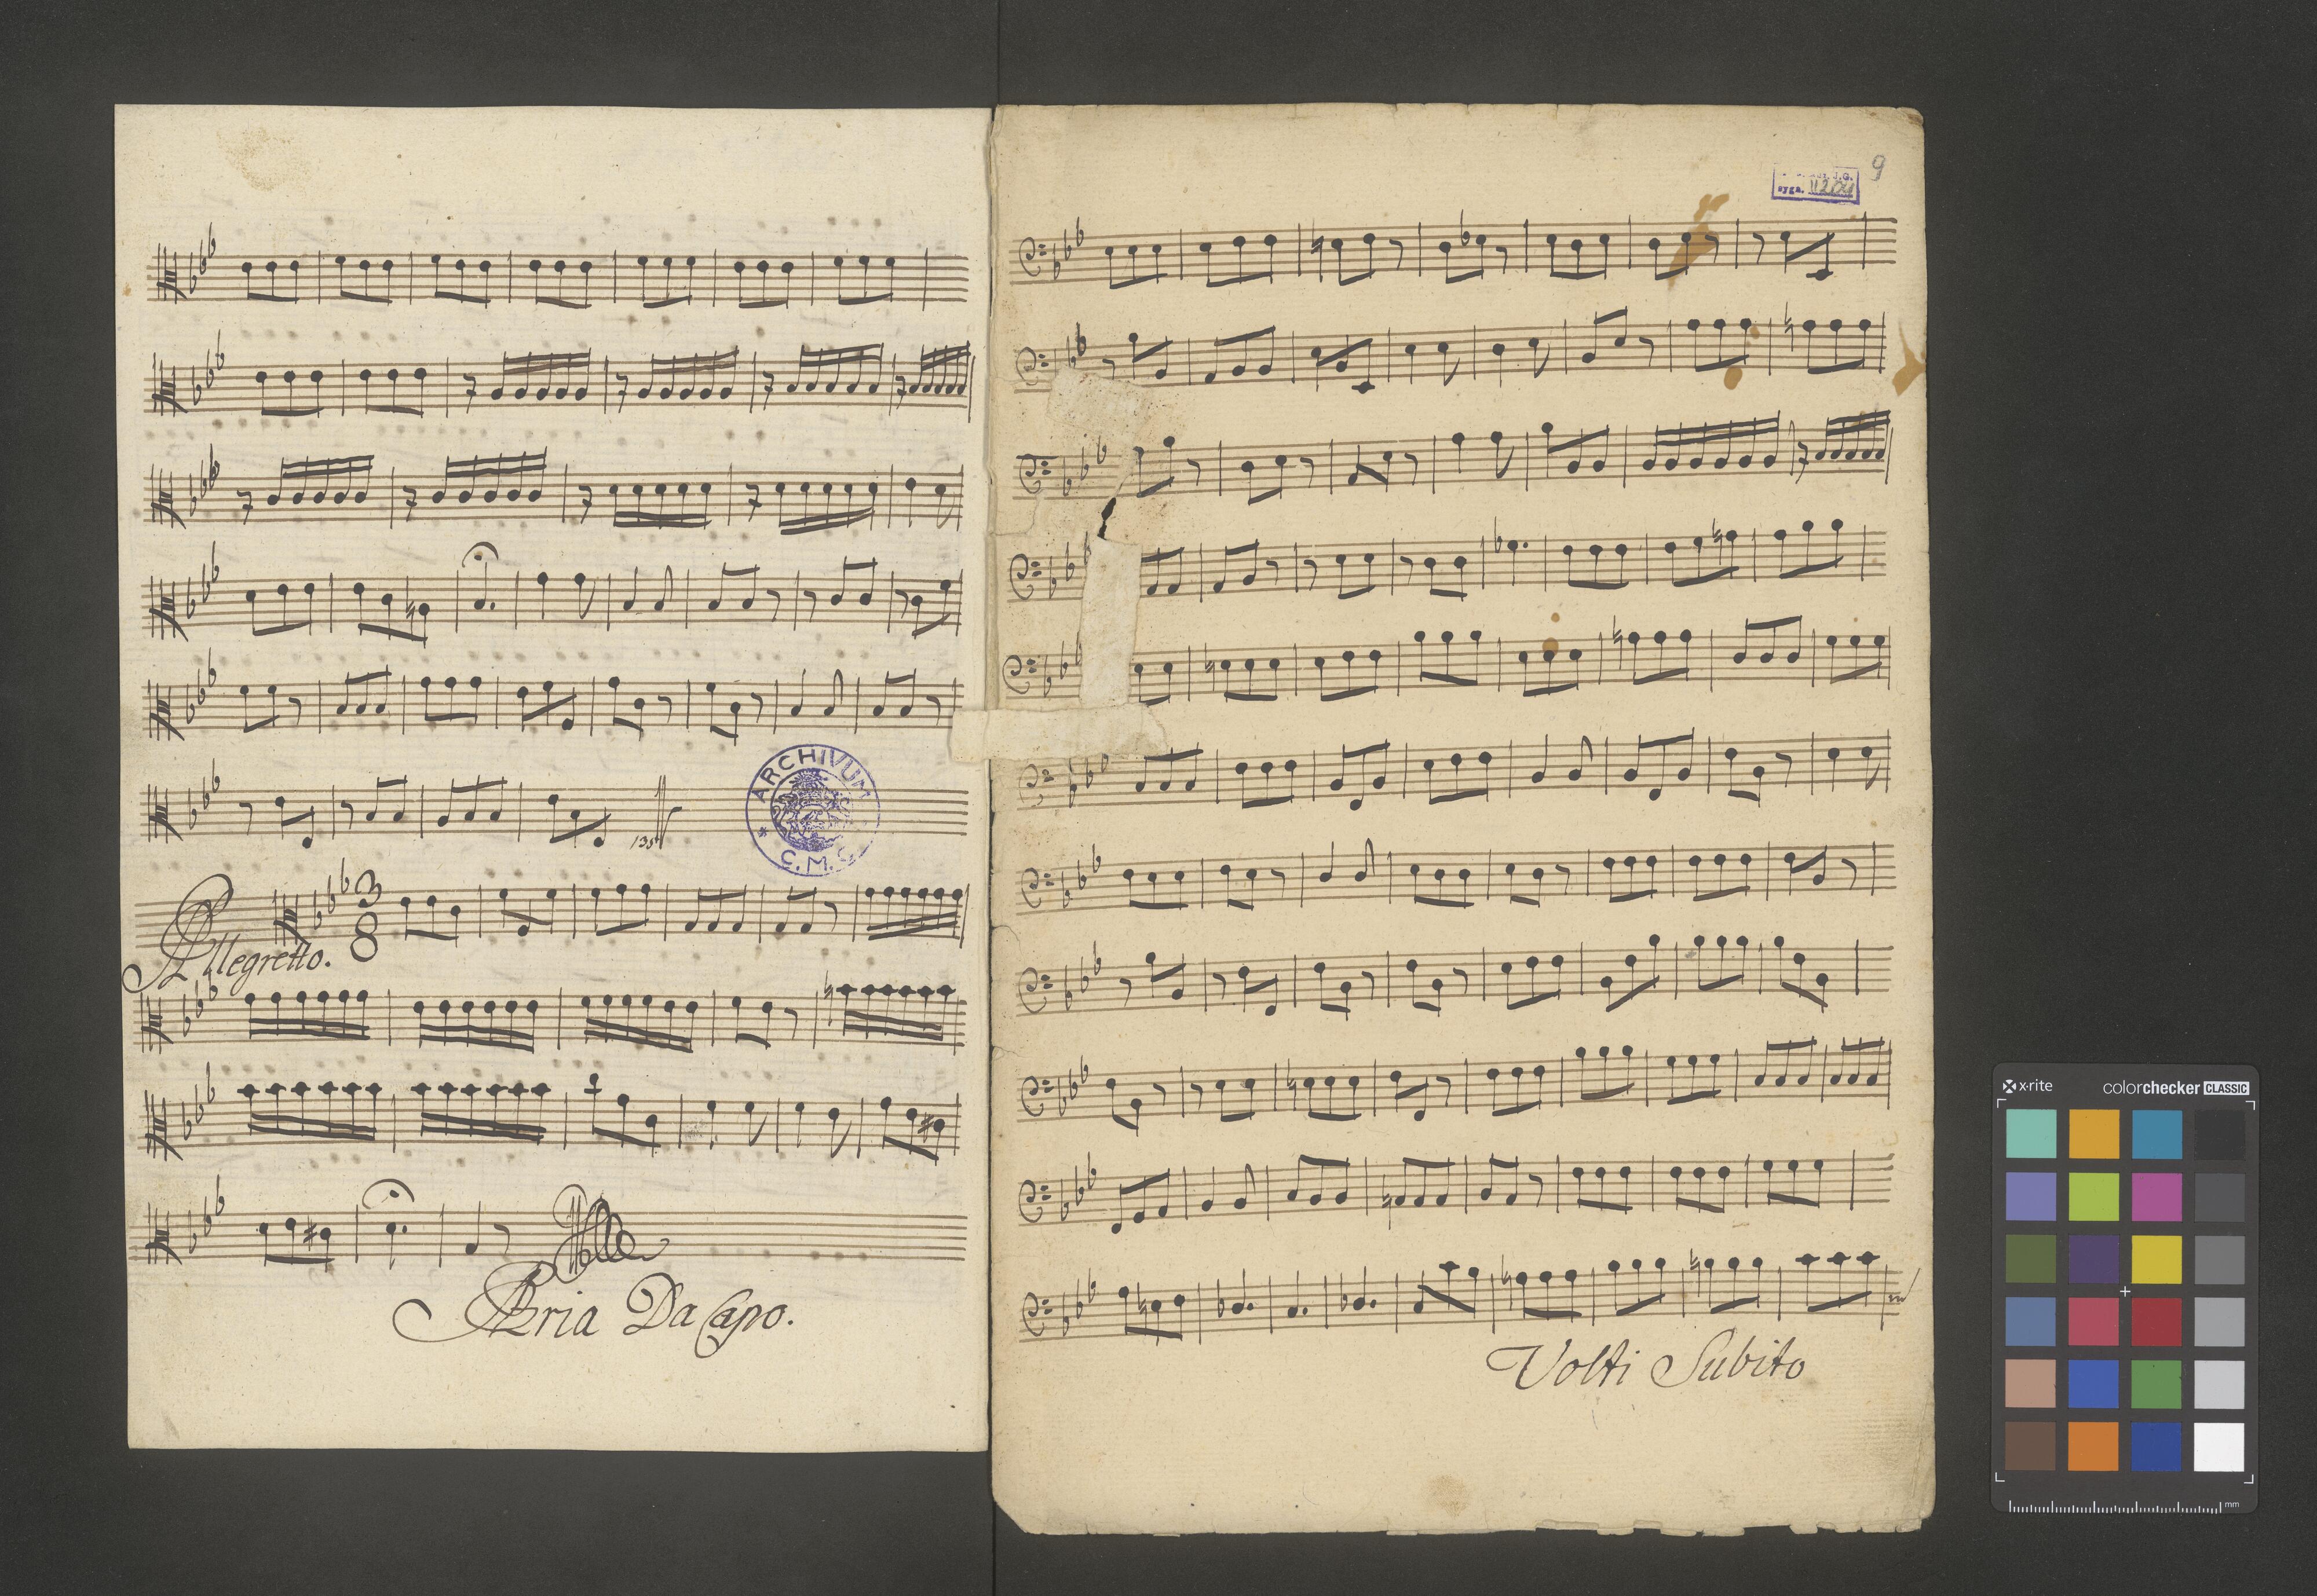 135
ARCHIVUM
* C. M. C.
3
8
Allegretto.
Aria Da Capo.
9
J. G.
sygn. II 204
Volti Subito
x-rite
colorchecker CLASSIC
mm